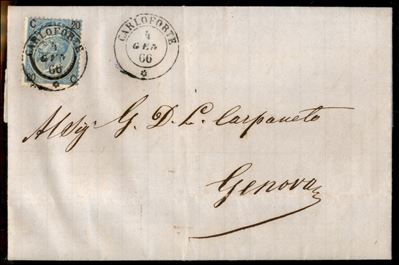 C 20
CARLOFORTE
4
GEN
66
CARLOFORTE
4
GEN
66
Al Sigr G. D. L. Carpaneto
Genova